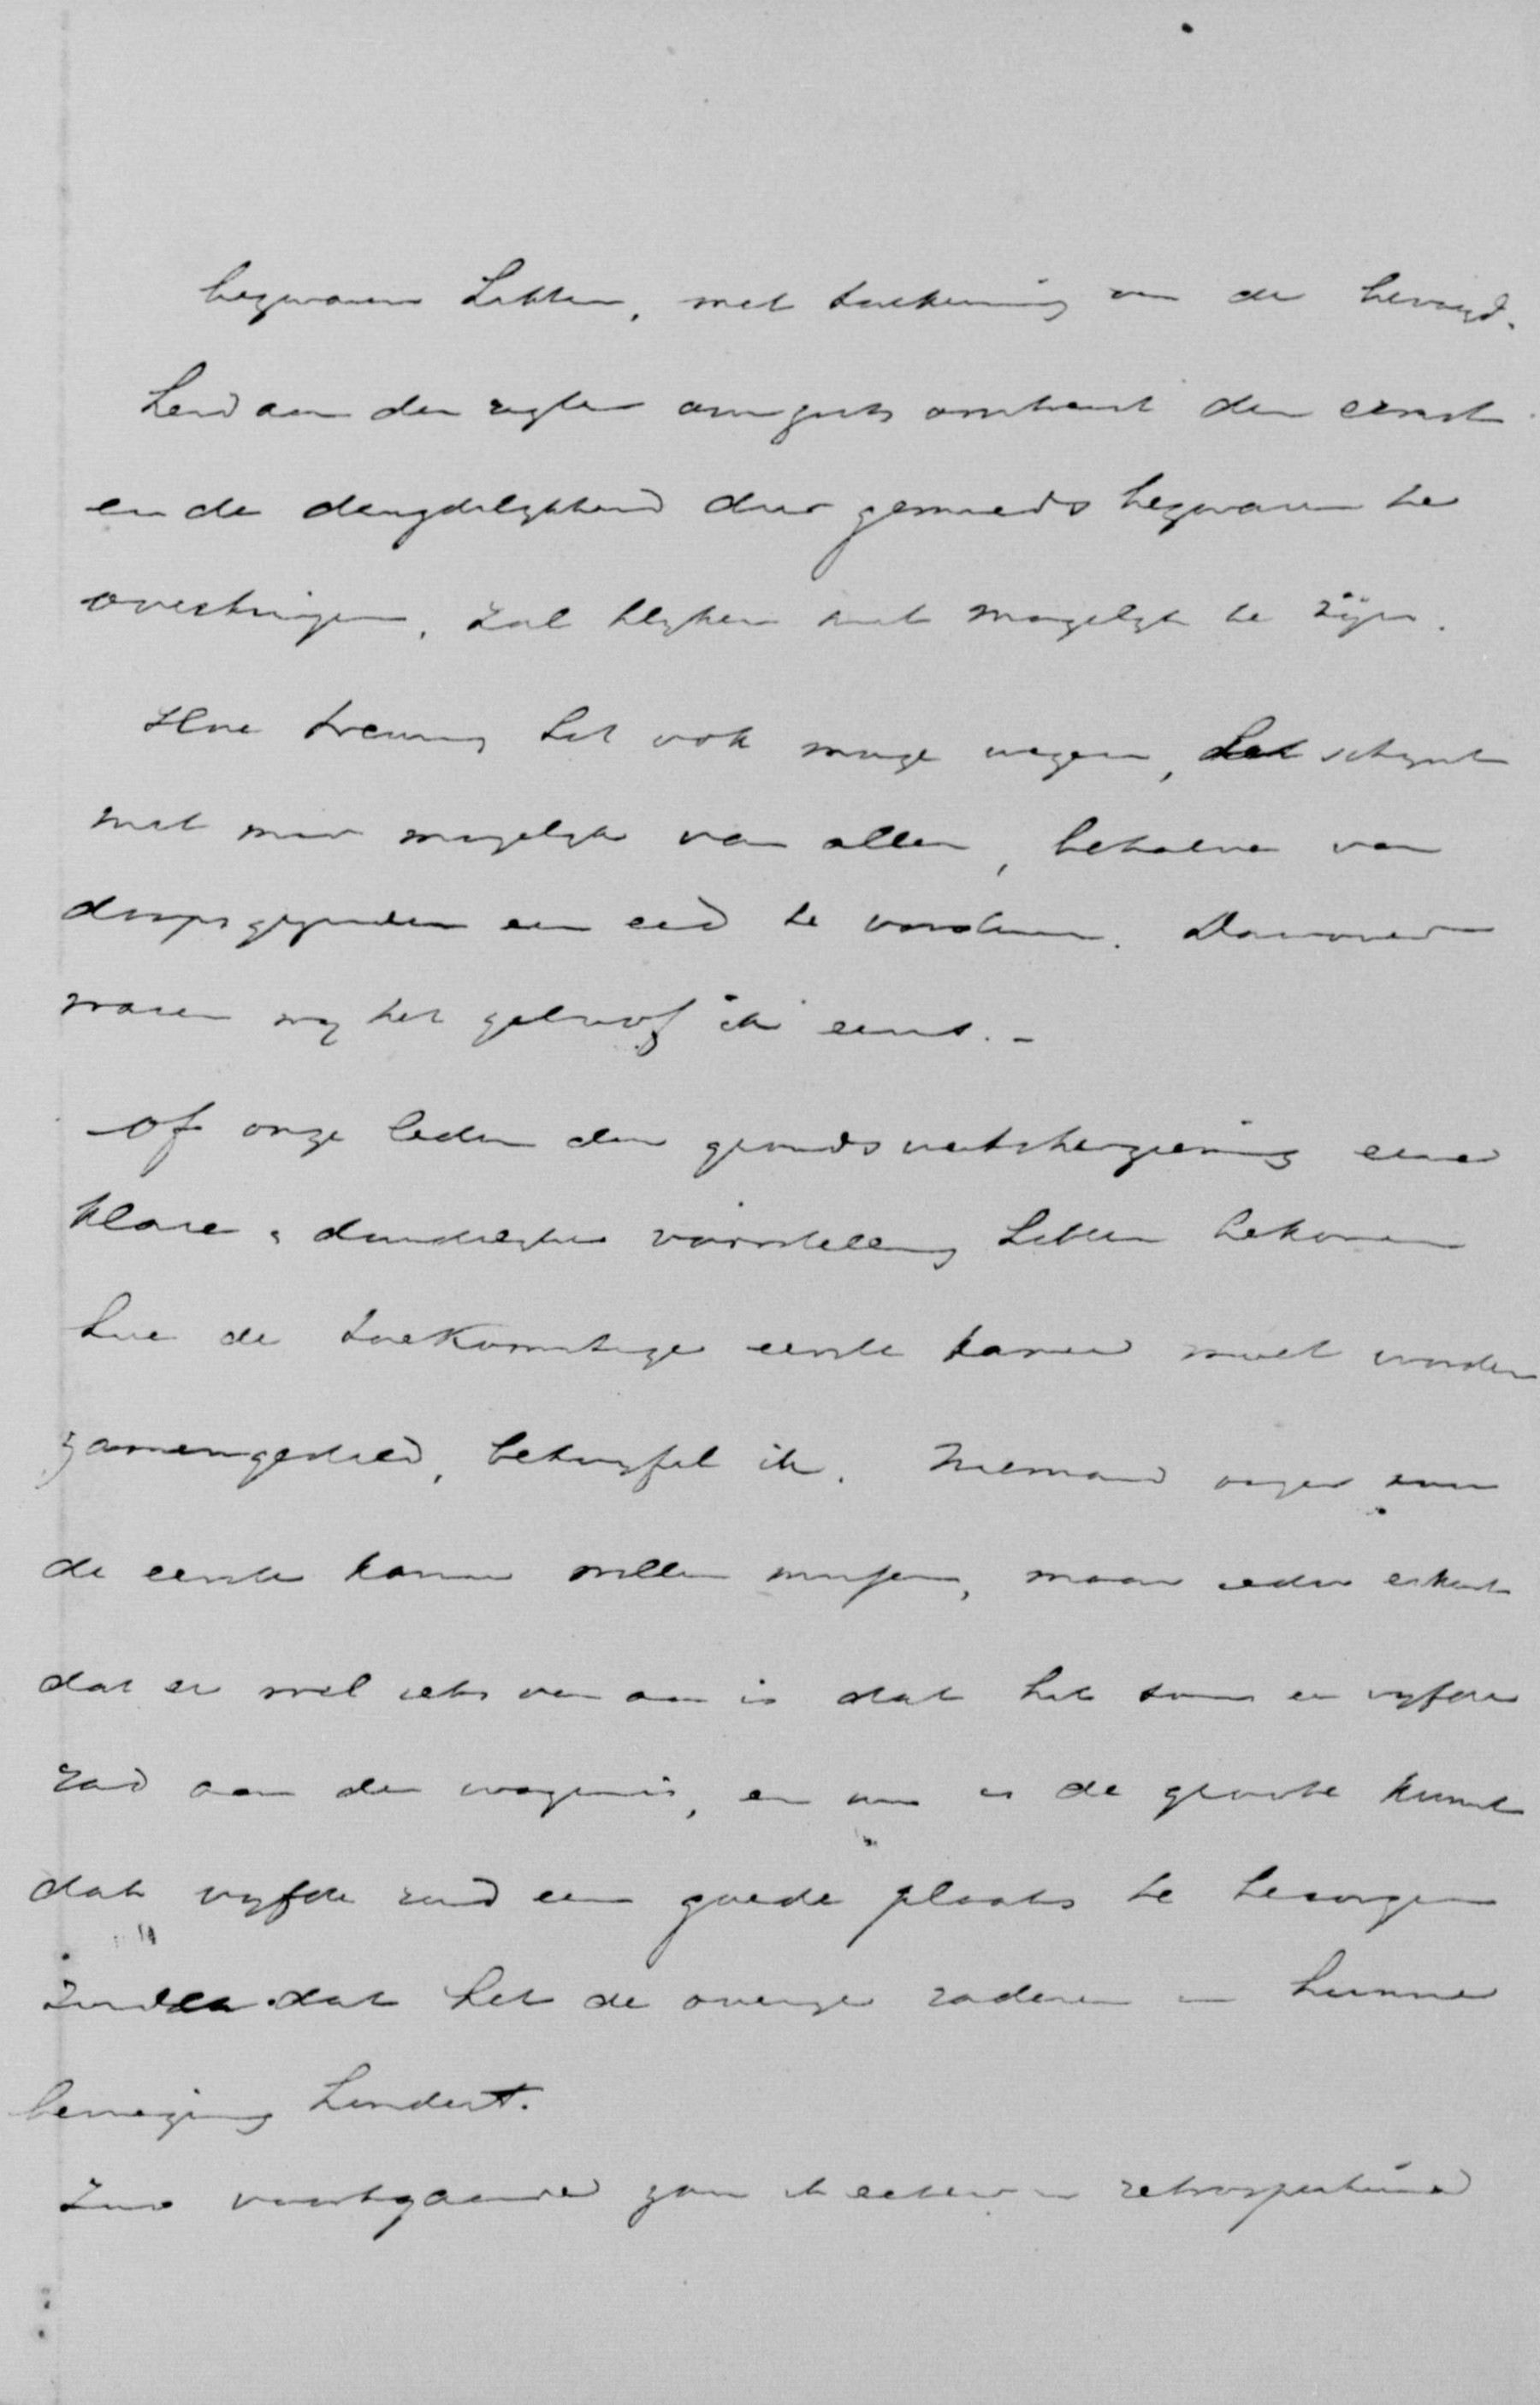 bezwaren hebben, met toekenning van de bevoegd-
heid aan den regter om gods omtrent den ernst
en de deugdelykheid dier gemoedsbezwaren te
overtuigen, zal blyken niet mogelyk te zijn.
Hoe treurig het ook moge wezen, het schynt
niet meer mogelyk van allen, behalve van
doopsgezinden een eed te vorderen. Daarover
waren wy het geloof ik eens. -
Of onze leden der grondswetsherziening eene
klare & duidelyke voorstelling hebben bekomen
hoe de toekomstige eerste kamer moet worden
zamengesteld, betwyfel ik. Niemand onzer zou
de eerste kamer willen missen, maar ieder erkent
dat er wel iets van aan is dat het soms een vyfde
rad aan den wagen is, en nu is de groote kunst
dat vyfde rad een goede plaats te bezorgen
zonder dat het de overige raderen in hunne
beweging hindert.
Zoo voortgaande zou ik echter in retrospectieve